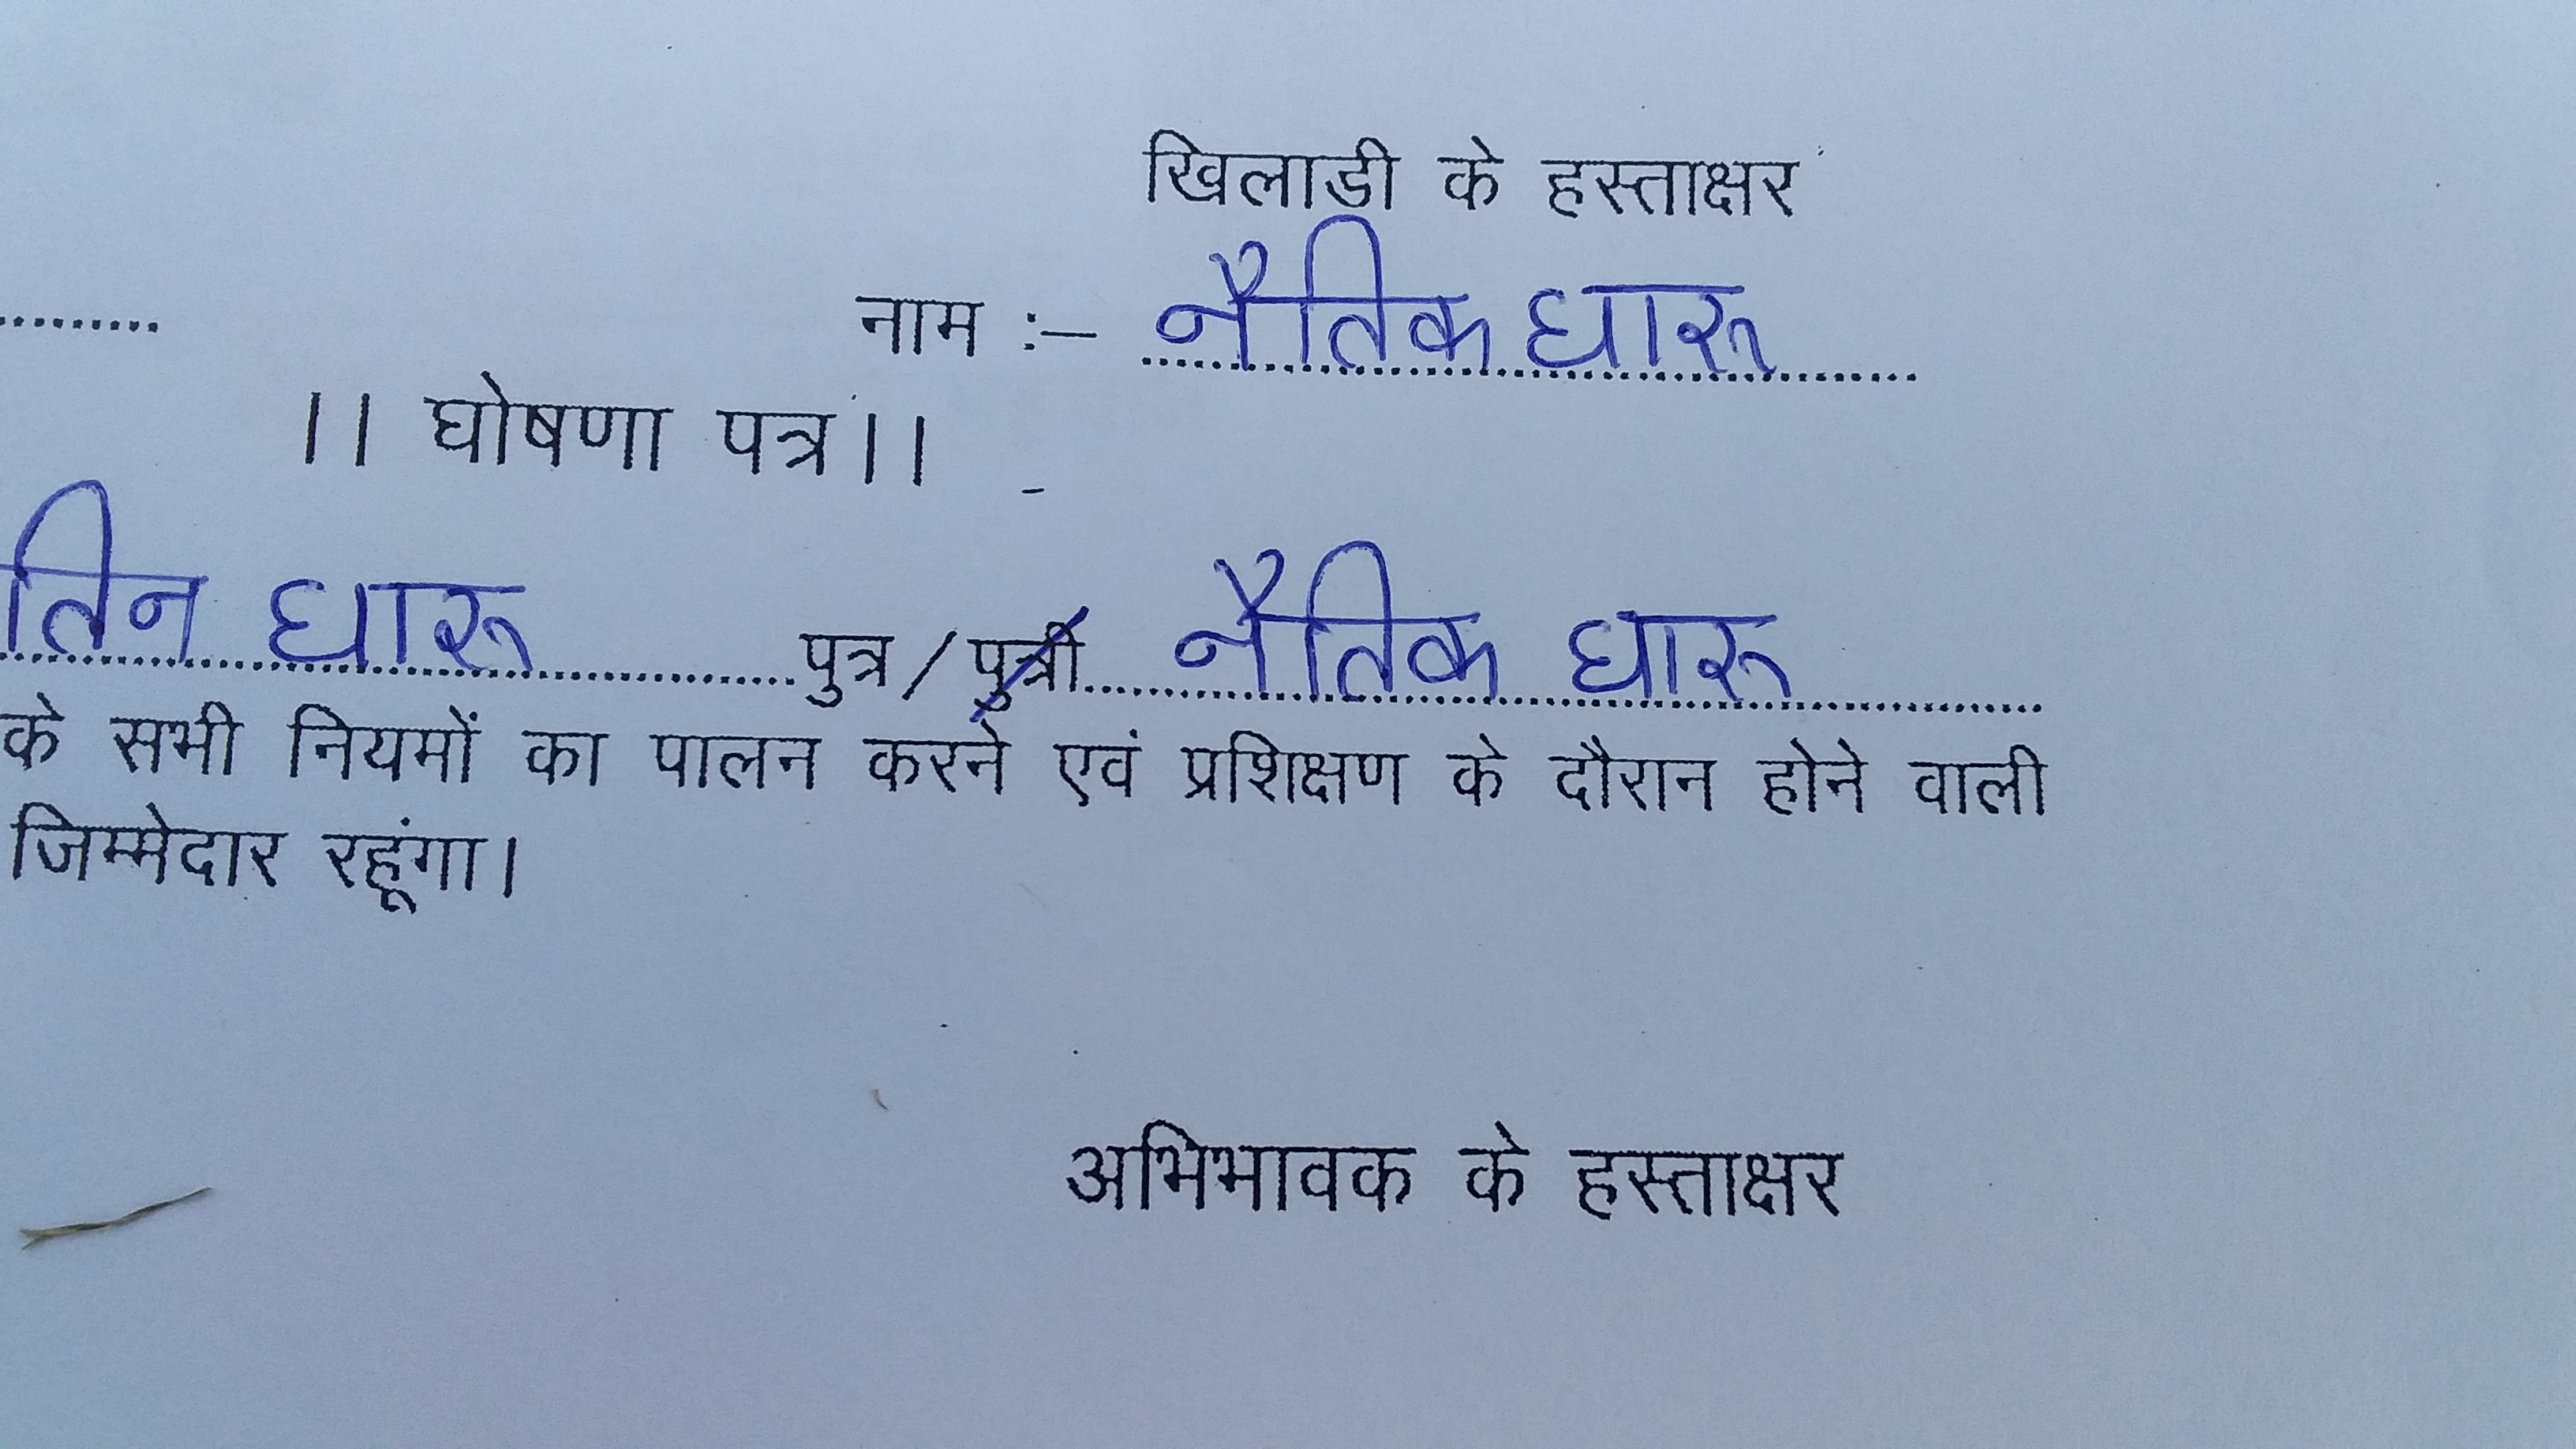 खिलाडी के हस्ताक्षर
नाम :– नैतिक धारू
।। घोषणा पत्र।।
तिन धारू पुत्र/पुत्री नैतिक धारू
के सभी नियमों का पालन करने एवं प्रशिक्षण के दौरान होने वाली
जिम्मेदार रहूंगा।
अभिभावक के हस्ताक्षर